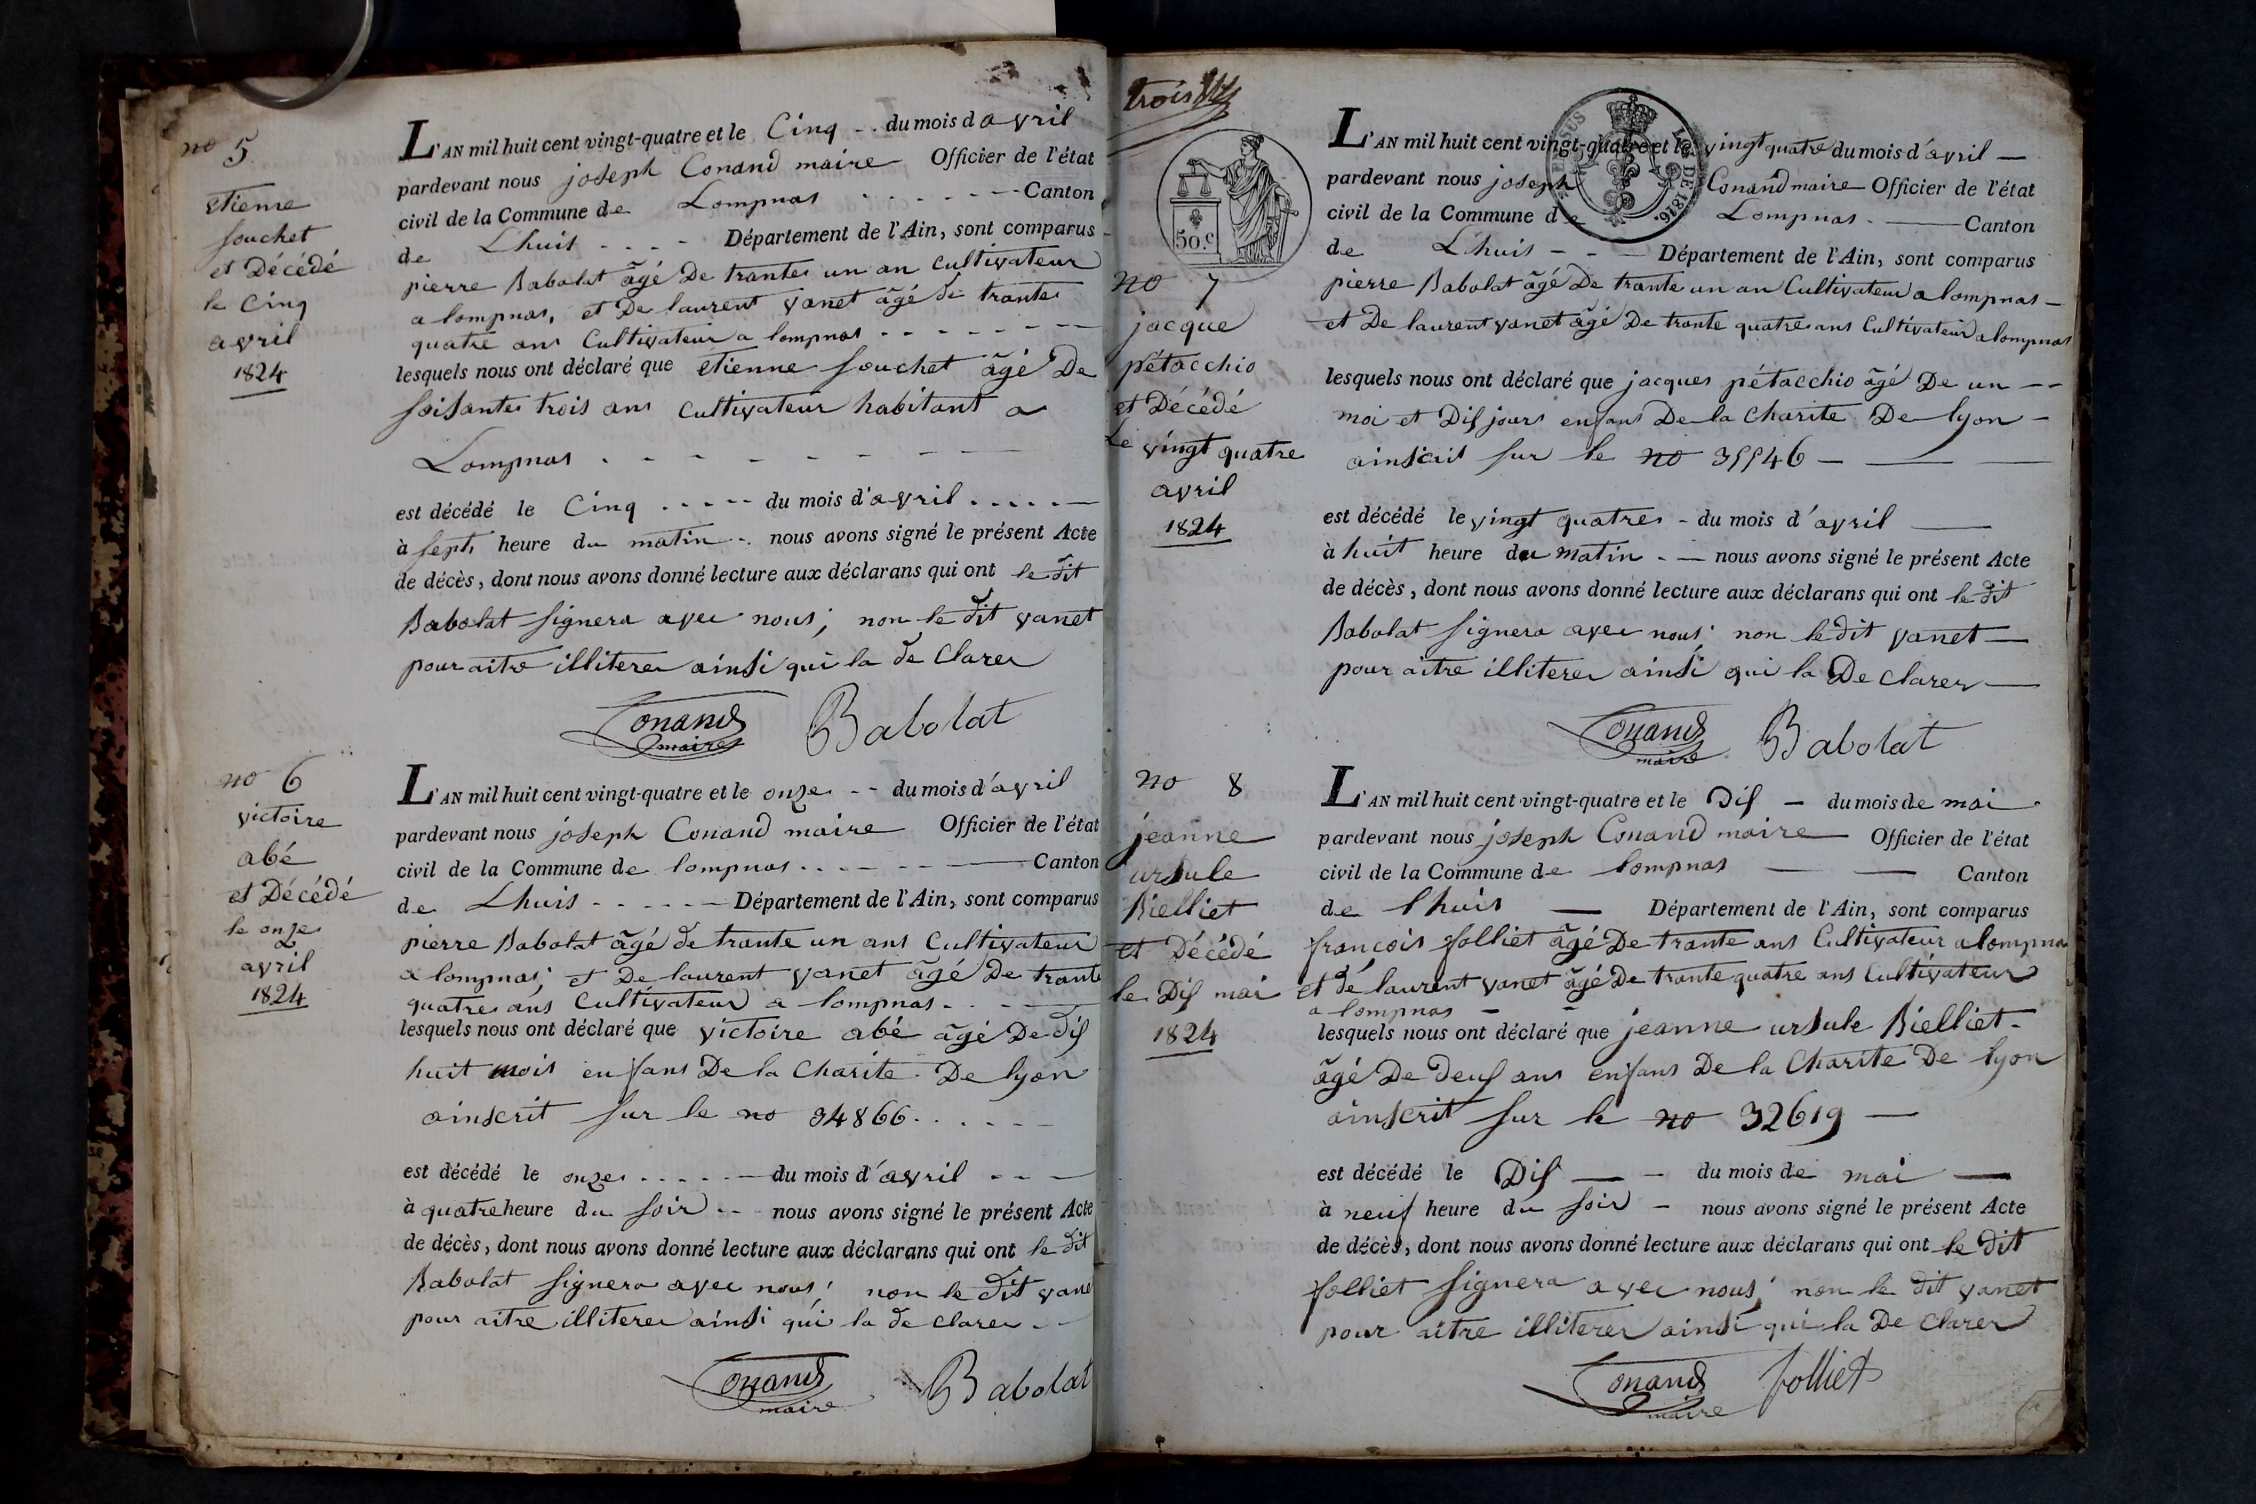 no 5
etienne
souchet
et Décédé
le Cinq
avril
1824
L'AN mil huit cent vingt-quatre et le Cinq du mois d avril
pardevant nous joseph Conand maire Officier de l'état
civil de la Commune de Lompnas Canton
de Lhuis Département de l'Ain, sont comparus
pierre Babolat âgé De trante un an Cultivateur
a lompnas, et De laurent vanet âgé de trante
quatre ans Cultivateur a lompnas
lesquels nous ont déclaré que etienne souchet âgé De
soisante trois ans cultivateur habitant a
Lompnas
est décédé le Cinq du mois d'avril
à sept heure du matin nous avons signé le présent Acte
de décès, dont nous avons donné lecture aux déclarans qui ont le dit
Babolat signera avec nous; non le dit vanet
pour aitre illiterer ainsi qui la de clarer
Conand maire Babolat
no 6
victoire
abé
et Décédé
le onze
avril
1824
L'AN mil huit cent vingt-quatre et le onze du mois d'avril
pardevant nous joseph Conand maire Officier de l'état
civil de la Commune de lompnas Canton
de Lhuis Département de l'Ain, sont comparus
pierre Babolat âgé de trante un ans Cultivateur
a lompnas; et De laurent vanet âgé De trante
quatre ans Cultivateur a lompnas
lesquels nous ont déclaré que victoire abé âgé De dis
huit mois enfans De la Charite De lyon
ainscrit sur le no 34866
est décédé le onze du mois d'avril
à quatre heure du soir nous avons signé le présent Acte
de décès, dont nous avons donné lecture aux déclarans qui ont le dit
Babolat signera avec nous; non le dit vanet
pour aitre illiterer ainsi qui la de clarer
Conand maire Babolat
trois
50.c
LOI DE 1816.
no 7
jacque
pétacchio
et Décédé
Le vingt quatre
avril
1824
L'AN mil huit cent vingt-quatre et le vingt quatre du mois d'avril
pardevant nous joseph Conand maire Officier de l'état
civil de la Commune de Lompnas Canton
de Lhuis Département de l'Ain, sont comparus
pierre Babolat âgé De trante un an Cultivateur a lompnas
et De laurent vanet âgé De trante quatre ans Cultivateur a lompnas
lesquels nous ont déclaré que jacques pétacchio âgé De un
moi et Dis jours enfans De la Charite De lyon
ainscrit sur le no 35546
est décédé le vingt quatre du mois d'avril
à huit heure du matin nous avons signé le présent Acte
de décès, dont nous avons donné lecture aux déclarans qui ont le dit
Babolat signera avec nous; non le dit vanet
pour aitre illiterer ainsi qui la De clarer
Conand maire Babolat
no 8
jeanne
ursule
Bielliet
et Décédé
le Dis mai
1824
L'AN mil huit cent vingt-quatre et le Dis du mois de mai
pardevant nous joseph Conand maire Officier de l'état
civil de la Commune de lompnas Canton
de lhuis Département de l'Ain, sont comparus
françois folliet âgé De trante ans Cultivateur a lompnas
et de laurent vanet âgé De trante quatre ans Cultivateur
a lompnas
lesquels nous ont déclaré que jeanne ursule Bielliet
âgé De deus ans enfans De la Charite De lyon
ainscrit sur le no 32619
est décédé le Dis du mois de mai
à neuf heure du soir nous avons signé le présent Acte
de décès, dont nous avons donné lecture aux déclarans qui ont le dit
folliet signera avec nous; non le dit vanet
pour aitre illiterer ainsi qui la De clarer
Conand maire folliet